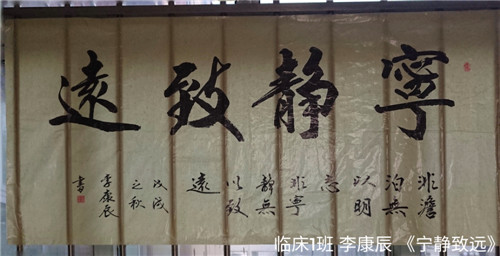 寧静致遠
非澹
泊無
以明
志
非寧
静無
以致
遠
戊戌
之秋
李康辰
書
临床1班 李康辰 《宁静致远》